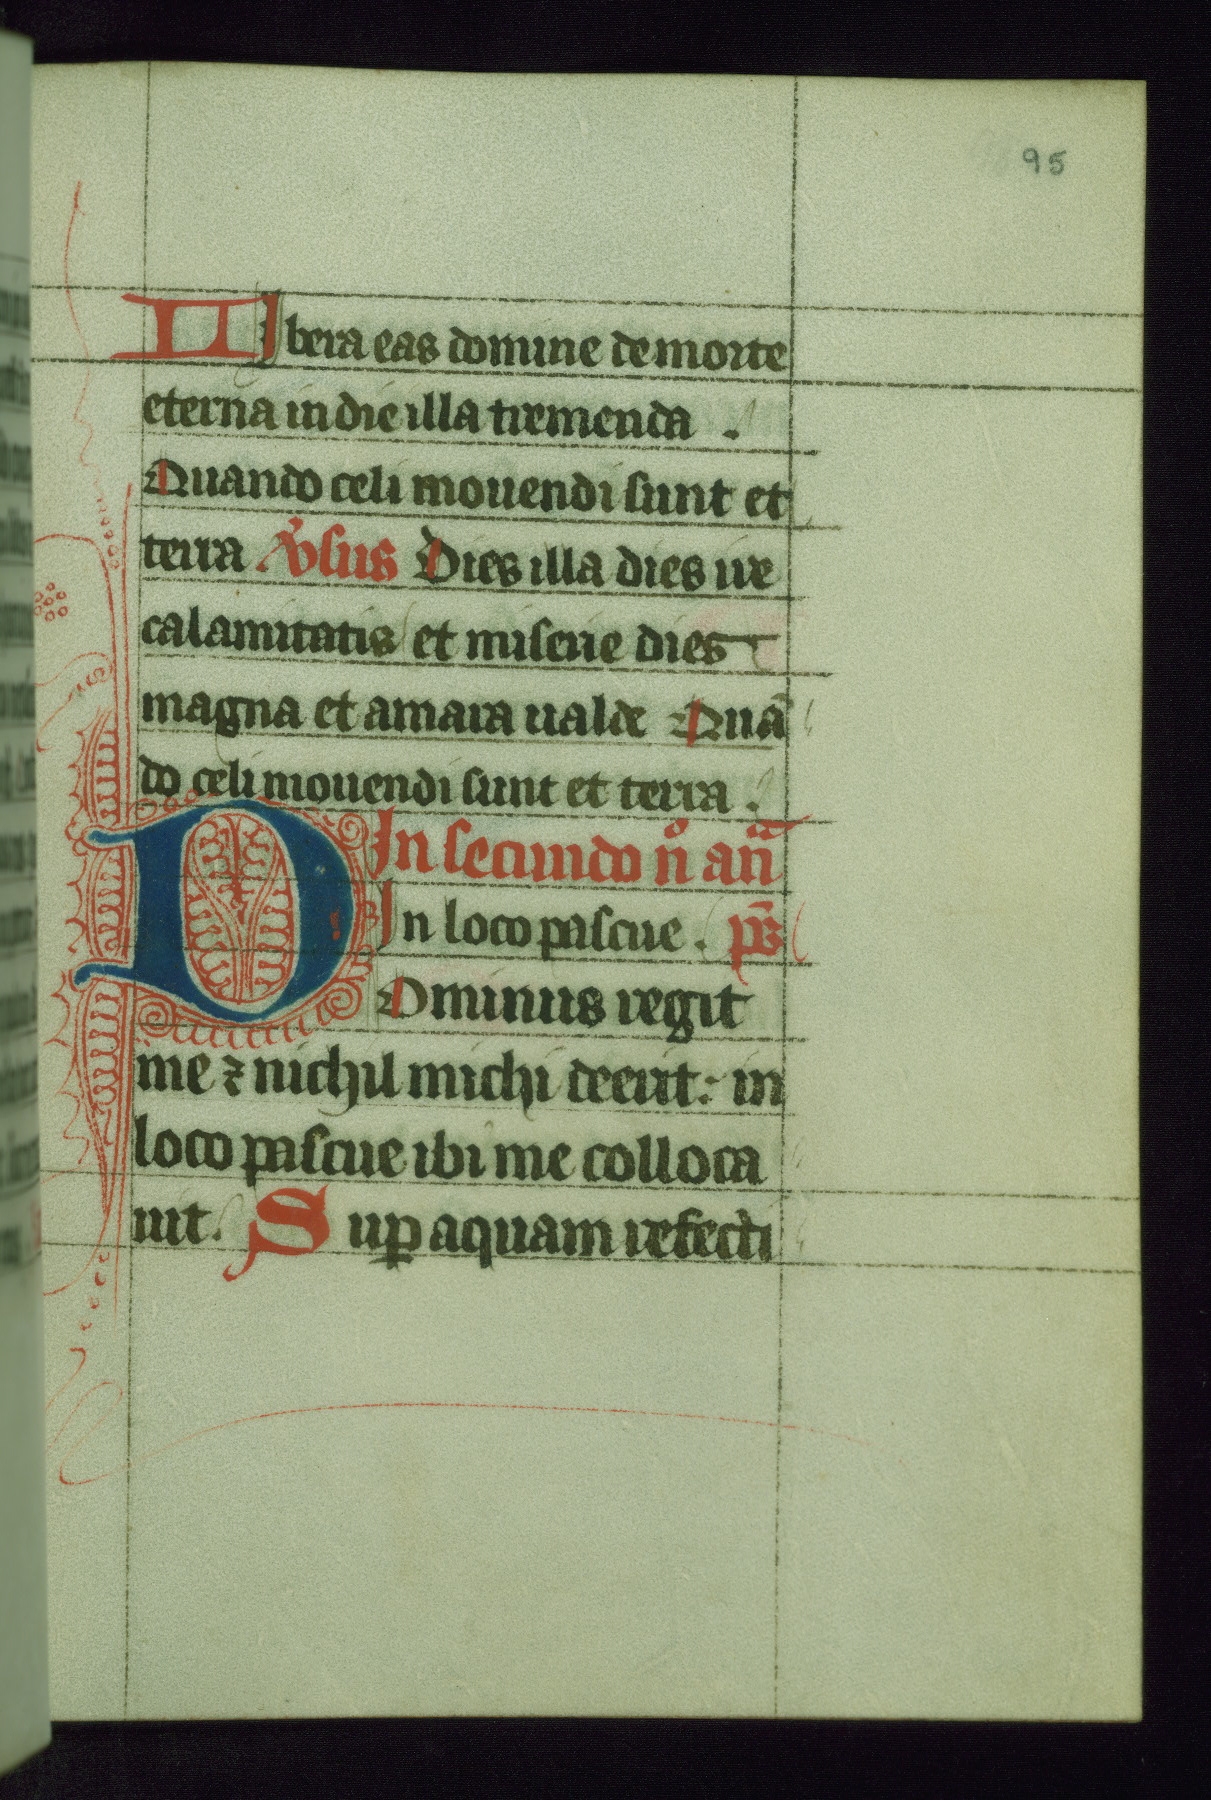 95
Libera eas domine de morte
eterna in die illa tremenda .
Quando celi mouendi sunt et
terra . v̾sus Dies illa dies ire
calamitatis et miserie dies
magna et amara ualde Quā
do celi mouendi sunt et terra .
In secundo n̊ an̄
In loco pascue . ps̄
Dominus regit
me ⁊ nichil michi deerit : in
loco pascue ibi me colloca
uit . Sup aquam refecti